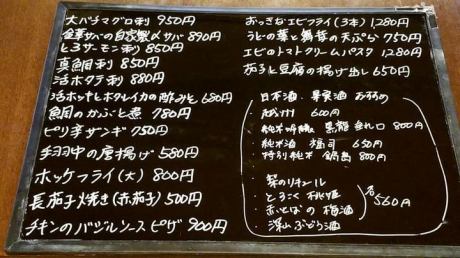 大バチマグロ刺 950円
金華サバの自家製〆サバ 890円
とろサーモン刺 850円
真鯛刺 850円
活ホタテ刺 880円
活ホッキとホタレイカの酢みそ 680円
鯛のかぶと煮 780円
ピリ辛ザンギ 750円
手羽中の唐揚げ 580円
ホッケフライ(大) 800円
長茄子焼き(赤茄子) 500円
チキンのバジルソースピザ 900円
おっきなエビフライ(3本) 1,280円
うどの葉と の天ぷら 750円
エビのトマトクリームパスタ 1280円
茄子と豆腐の揚げ出し 650円
日本酒、果実酒 おすすめ
・ 600円
・純米吟醸 黒龍 垂れ口 800円
・純米酒 福司 650円
・特別純米 鍋島 800円
・梨のリキュール
・とろこく 桃姫
・あいとぱの 梅酒
・深山ぶどう酒
各560円